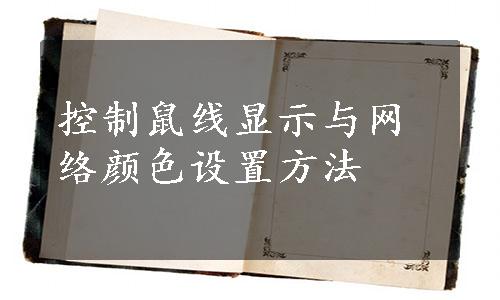 控制鼠线显示与网
络颜色设置方法